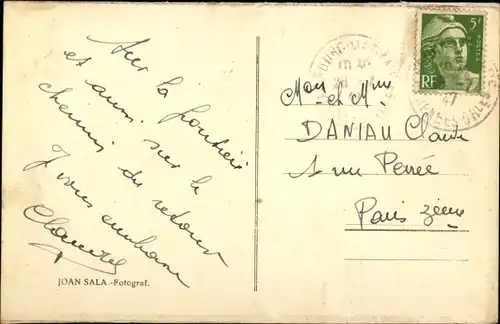 Sur la frontière
et aussi sur le
chemin du retour
Je vous embrasse
JOAN SALA.-Fotograf.
POSTES
5F
RF
47
Mon et Mme
DANIAU Claude
1 rue Perrée
Paris 3ème